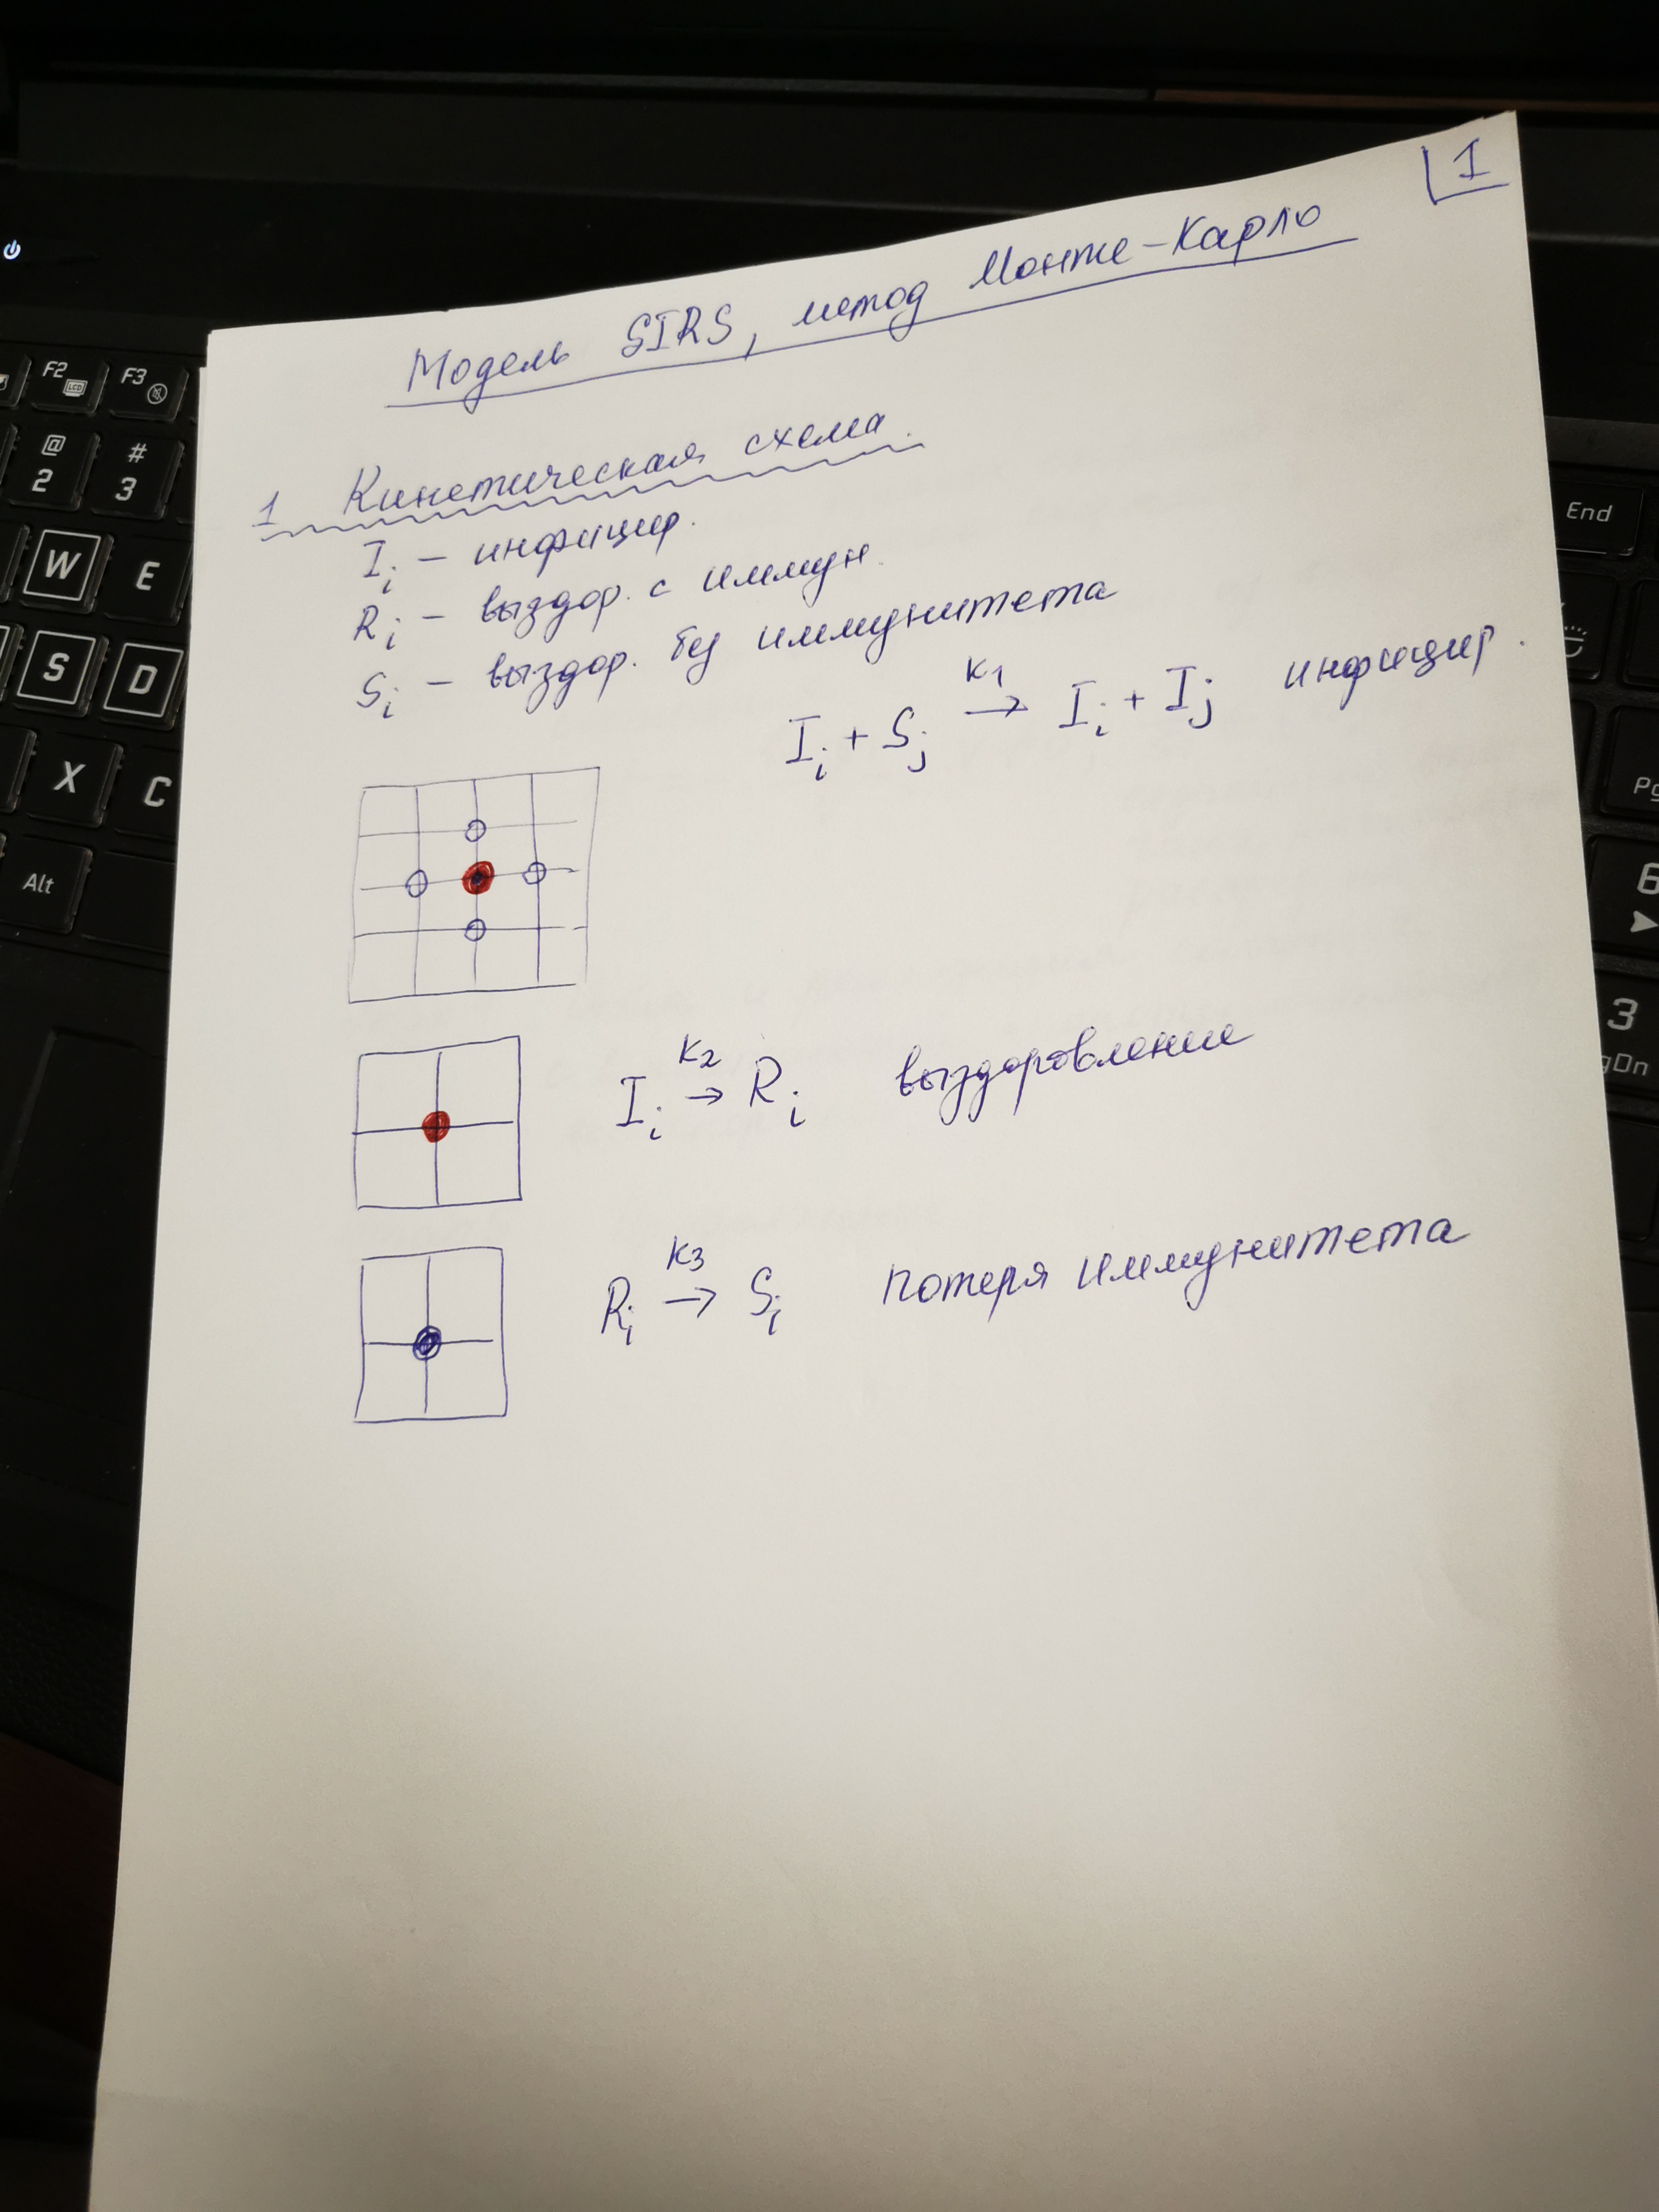 1
Модель SIRS, метод Монте-Карло
1 Кинетическая схема.
I_i – инфицир.
R_i – выздор. с иммун.
S_i – выздор. без иммунитета
I_i + S_j →^{K1} I_i + I_j инфицир.
I_i →^{K2} R_i выздоровление
R_i →^{K3} S_i потеря иммунитета
F2
LCD
F3
@
2
#
3
W
E
S
D
X
C
Alt
End
Pg
6
3
gDn